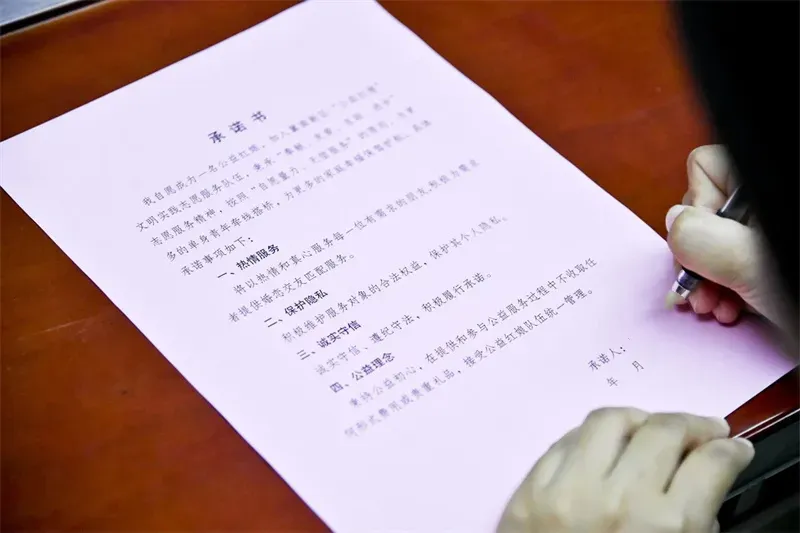 承诺书
我自愿成为一名公益红娘，加入
文明实践志愿服务队伍，秉承"奉献、友爱、互助、进步"
志愿服务精神，按照"自愿量力、无偿服务"的原则，为更
多的单身青年牵线搭桥，为更多的家庭幸福保驾护航，具体
承诺事项如下：
一、热情服务
将以热情和真心服务每一位有需求的朋友,积极与需求
者提供婚恋交友匹配服务。
二、保护隐私
积极维护服务对象的合法权益，保护其个人隐私。
三、诚实守信
诚实守信、遵纪守法，积极履行承诺。
四、公益理念
秉持公益初心，在提供和参与公益服务过程中不收取任
何形式费用或贵重礼品，接受公益红娘队伍统一管理。
承诺人：
年 月